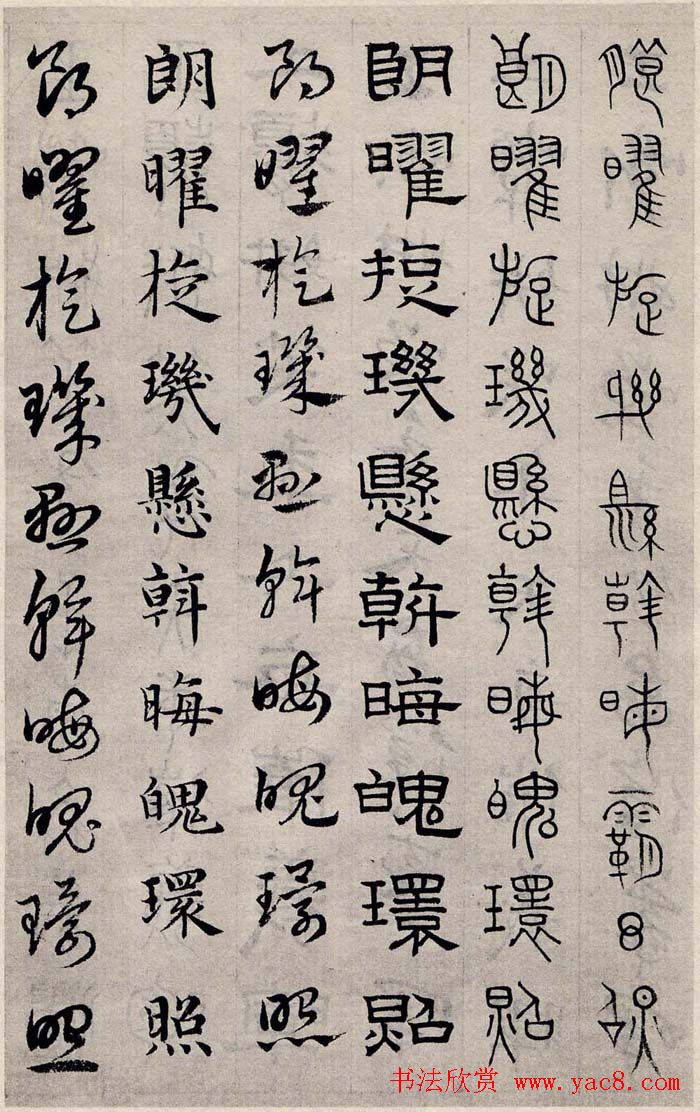 朖曜旋縣斡晦霸
朗曜旋璣懸斡晦魄環照
朗曜旋璣懸斡晦魄環照
朗曜旋璣懸斡晦魄環照
朗曜旋璣懸斡晦魄環照
朗曜旋璣懸斡晦魄環照
书法欣赏 www.yac8.com